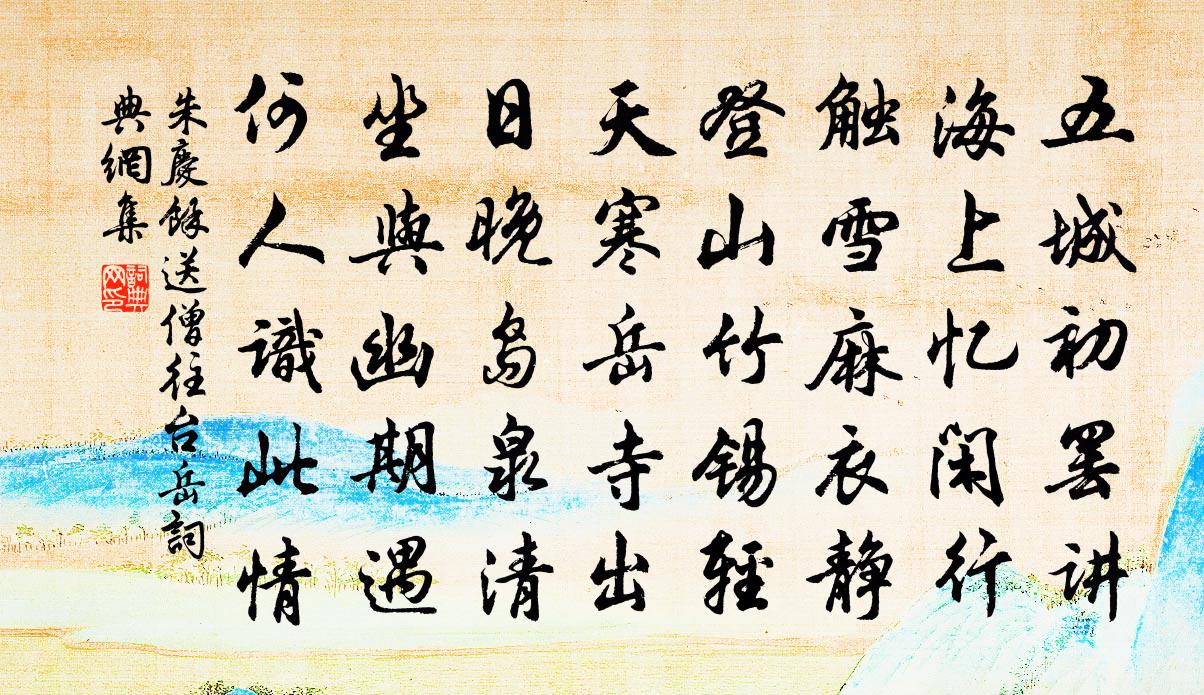 五城初罢讲
海上忆闲行
触雪麻衣静
登山竹锡轻
天寒岳寺出
日晚岛泉清
坐与幽期遇
何人識此情
朱慶餘送僧往台岳詞
典網集
詞典网印